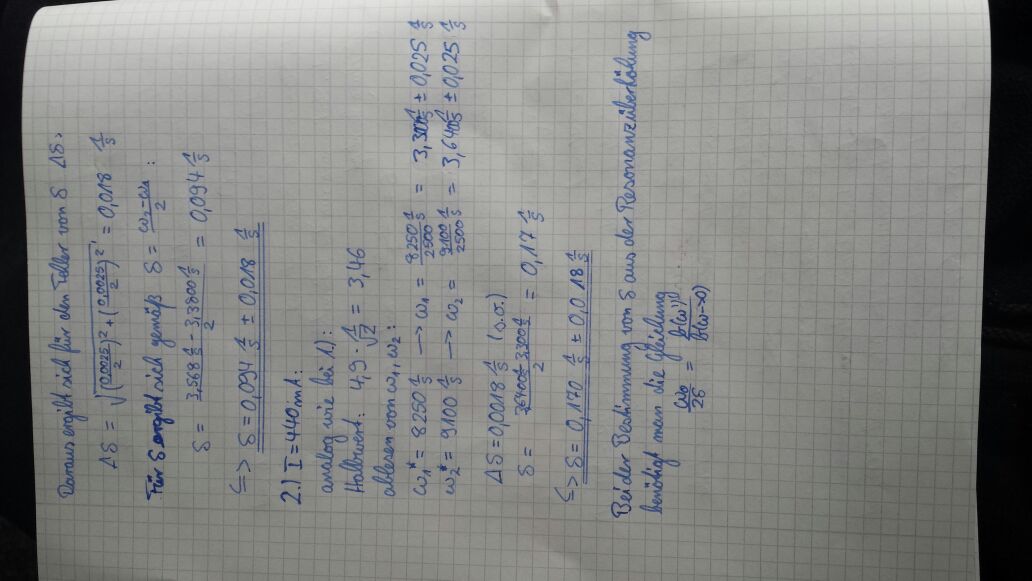 Daraus ergibt sich für den Fehler von δ Δδ:
Δδ = √((0,0025/2)² + (0,0025/2)²) = 0,018 1/s
Für δ ergibt sich gemäß δ = (ω₂-ω₁)/2 :
δ = (3,568 1/s - 3,3800 1/s)/2 = 0,094 1/s
<=> δ = 0,094 1/s ± 0,018 1/s
2.) I = 440mA:
analog wie bei 1):
Halbwert: 4,9 · 1/√2 = 3,46
ablesen von ω₁, ω₂:
ω₁* = 8250 1/s → ω₁ = 8250 1/s / 2500 = 3,300 1/s ± 0,025 1/s
ω₂* = 9100 1/s → ω₂ = 9100 1/s / 2500 = 3,640 1/s ± 0,025 1/s
Δδ = 0,0018 1/s (s.o.)
δ = (3,6400 1/s - 3,300 1/s)/2 = 0,17 1/s
<=> δ = 0,170 1/s ± 0,018 1/s
Bei der Bestimmung von δ aus der Resonanzüberhöhung
benötigt man die Gleichung
ω₀/2δ = b(ω)/b(ω→0)